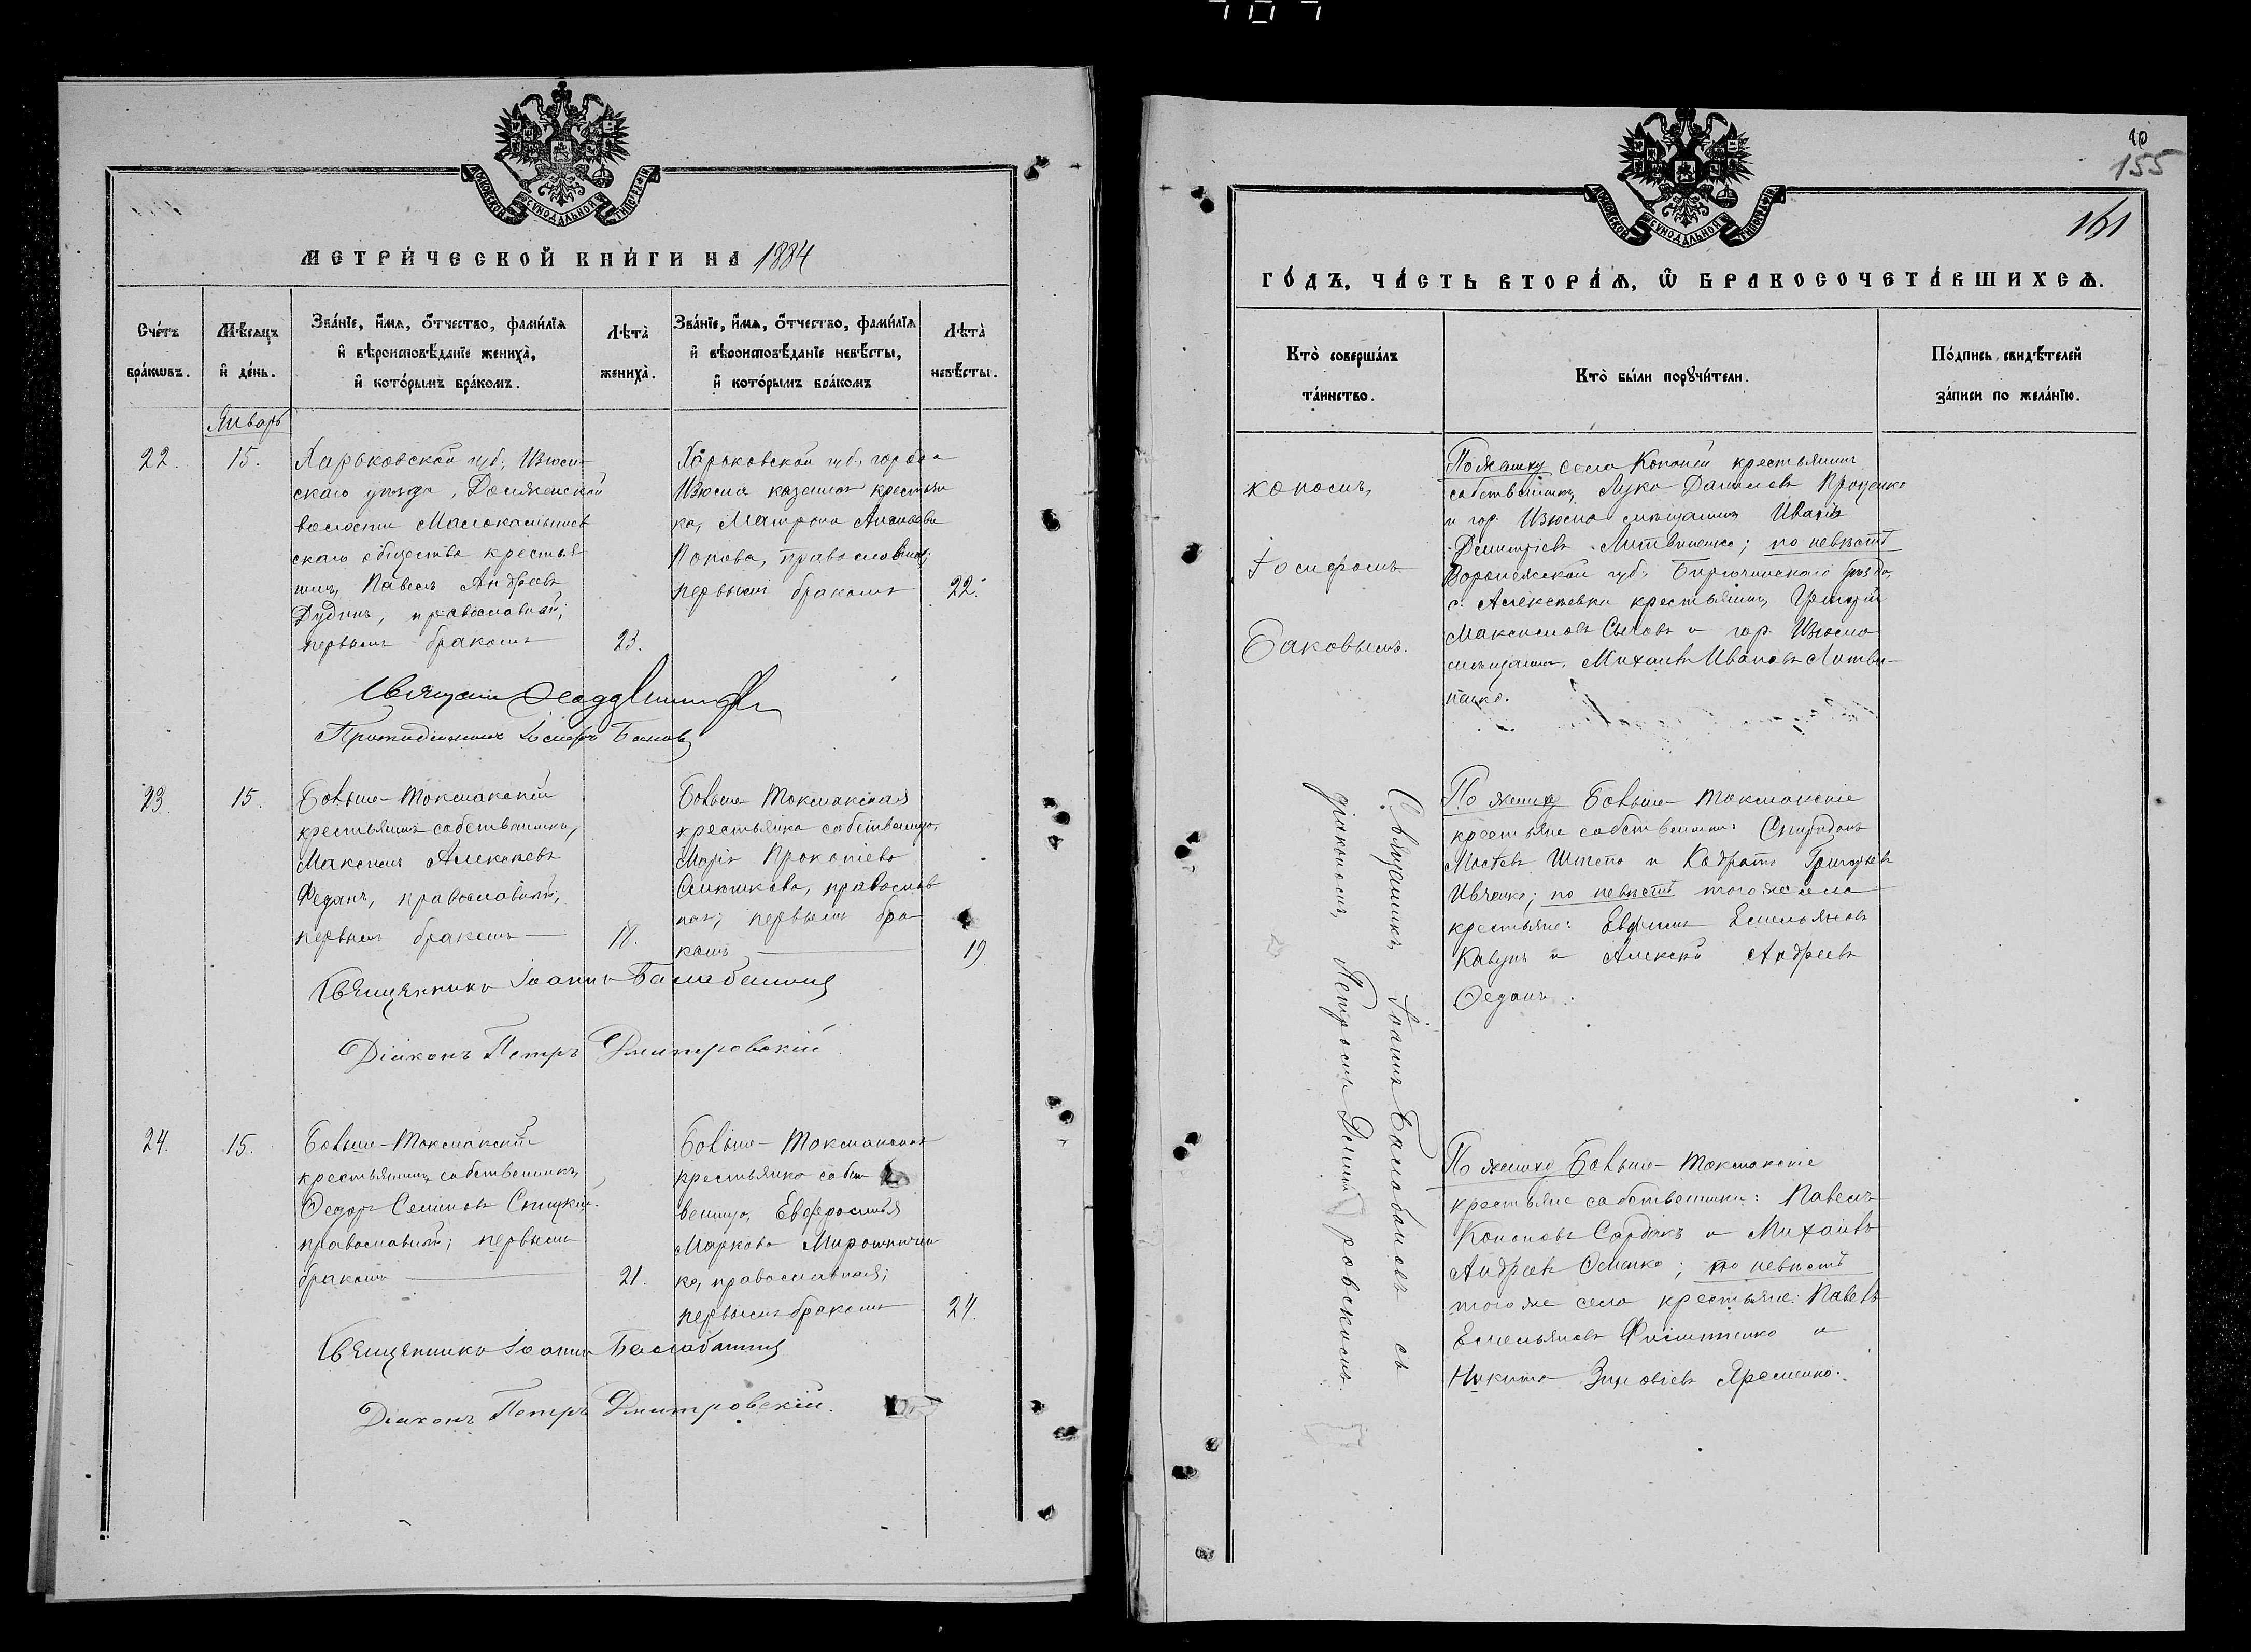 МОСКОВСКОЙ СѴНОДАЛЬНОЙ ТИПОГРАФІИ
МЕТРИ́ЧЕСКОЙ КНИ́ГИ НА 1884
Сче́тъ бра́кѡвъ.
Мѣ́сяцъ и҆ де́нь.
Зва́нїе, и҆́мѧ, ѻ҆́тчество, фами́лїѧ и҆ вѣроисповѣ́данїе женихà, и҆ кото́рымъ бра́комъ.
Лѣтà женихà.
Зва́нїе, и҆́мѧ, ѻ҆́тчество, фами́лїѧ и҆ вѣроисповѣ́данїе невѣ́сты, и҆ кото́рымъ бра́комъ
Лѣтà невѣ́сты.
Январь
22.
15.
Харьковской губ., Изюм-
скаго уѣзда,
волости
скаго общества крестья
нинъ, Павелъ Андреевъ
Дудинъ, православный;
первымъ бракомъ
23.
Харьковской губ., города
Изюма казенная крестьян
ка, Матрона
Попова, православная;
первымъ бракомъ
22.
Священникъ
Протодіаконъ Іосифъ Баковъ
23
15.
Больше-Токмакскій
крестьянинъ собственникъ,
Максимъ Алексѣевъ
Феданъ, православный;
первымъ бракомъ
Больше Токмакская
крестьянка собственица,
Марія Прокопіева
православ
ная; первымъ бра
комъ
19
Священникъ Іоаннъ Балабановъ
Діаконъ Петръ Дмитровскій
24.
15.
Больше-Токмакскій
крестьянинъ собственникъ,
Ѳедоръ Семеновъ
православный; первымъ
бракомъ
21.
Больше-Токмакская
крестьянка собст
веница, Евфросинія
Маркова Мирошничен
ко, православная;
первымъ бракомъ
24.
Священникъ Іоаннъ Балабановъ
Діаконъ Петръ Дмитровскій.
155
161
МОСКОВСКОЙ СѴНОДАЛЬНОЙ ТИПОГРАФІИ
ГО́ДЪ, ЧА́СТЬ ВТОРА́Ѧ, Ѡ҆ БРАКОСОЧЕТА́ВШИХСѦ.
Кто̀ соверша́лъ та́инство.
Кто̀ бы́ли порꙋчи́тели.
По́дпись свидѣ́телей за́писи по жела́нїю.
кономъ,
Іосифомъ
Баковымъ.
По жениху села Копаней крестьянинъ
собственникъ, Лука Даниловъ Проценко
и гор. Изюма мѣщанинъ Иванъ
Дмитріевъ Литвиненко; по невѣстѣ
Воронежской губ., Бирюченскаго уѣзда,
с. Алексѣевки крестьянинъ Григорій
Максимовъ Сычовъ и гор. Изюма
мѣщанинъ, Михаилъ Ивановъ Литви-
ненко.
Священникъ Іоаннъ Балабановъ съ
діакономъ, Петромъ Дмитровскимъ.
По жениху Больше-Токмакскіе
крестьяне собственники: Спиридонъ
и Кодратъ Григорьевъ
Ивченко; по невѣстѣ того же села
крестьяне: Евфимъ Емельяновъ
Кавунъ и Алексѣй Андреевъ
Феданъ.
По жениху Больше-Токмакскіе
крестьяне собственники: Павелъ
Кононовъ Сардакъ и Михаилъ
Андреевъ; по невѣстѣ
того же села крестьяне: Павелъ
Емельяновъ и
Никита Зиновіевъ Яременко.